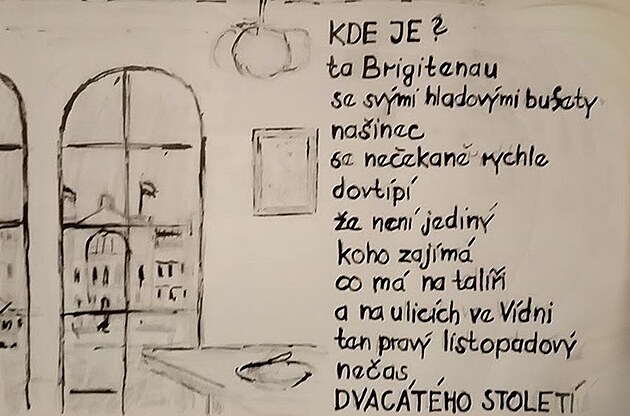 KDE JE?
ta Brigitenau
se svými hladovými bufety
našinec
se nečekaně rychle
dovtípí
že není jediný
koho zajímá
co má na talíři
a na ulicích ve Vídni
ten pravý listopadový
nečas
DVACÁTÉHO STOLETÍ